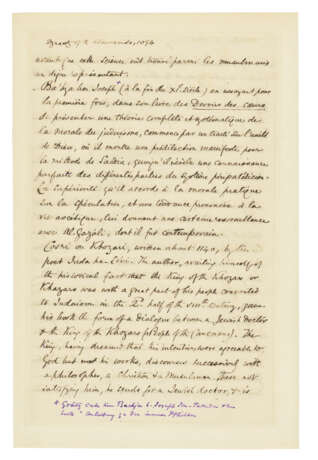 autant que cette science ait trouvé parmi les musulmans
un digne représentant.
Ba'hya ben Joseph (à la fin du XI. siècle) en essayant pour
la première fois, dans son livre des Devoirs des cœurs
de présenter une théorie complète et systématique de
la morale du judaïsme, commence par un traité sur l'unité
de Dieu, où il montre une prédilection manifeste pour
la méthode de Saadia, quoiqu'il révèle une connaissance
parfaite des différentes parties du système péripatéticien.
La supériorité qu'il accorde à la morale pratique
sur la spéculation, et une tendance prononcée à la
vie ascétique, lui donnent une certaine ressemblance
avec Al. Gazâli, dont il fut contemporain.
Cosri or Khozari, written about 1140, by the
poet Juda ha-Levi. The author, availing himself of
the historical fact that the King of the Khozars or
Khazars was with a great part of his people converted
to Judaism in the 2d half of the VIIIth century, gave
his book the form of a Dialogue between a Jewish Doctor
& the King of the Khozars
King, having dreamed that his intentions were agreeable to
God but not his works, discourses successively with
a philosopher, a Christian & a Musulman, these not
satisfying him, he sends for a Jewish doctor, & is